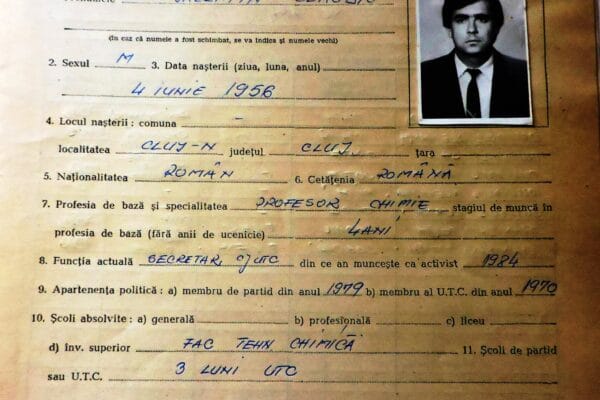 (În caz că numele a fost schimbat, se va indica și numele vechi)
2. Sexul M 3. Data nașterii (ziua, luna, anul)
4 IUNIE 1956
4. Locul nașterii : comuna –
localitatea CLUJ-N județul CLUJ țara
5. Naționalitatea ROMÂN 6. Cetățenia ROMÂNĂ
7. Profesia de bază și specialitatea PROFESOR CHIMIE stagiul de muncă în
profesia de bază (fără anii de ucenicie) 4 ANI
8. Funcția actuală SECRETAR CJUTC din ce an muncește ca activist 1984
9. Apartenența politică : a) membru de partid din anul 1979 b) membru al U.T.C. din anul 1970
10. Școli absolvite : a) generală b) profesională c) liceu
d) înv. superior FAC TEHN CHIMICĂ 11. Școli de partid
sau U.T.C. 3 LUNI UTC